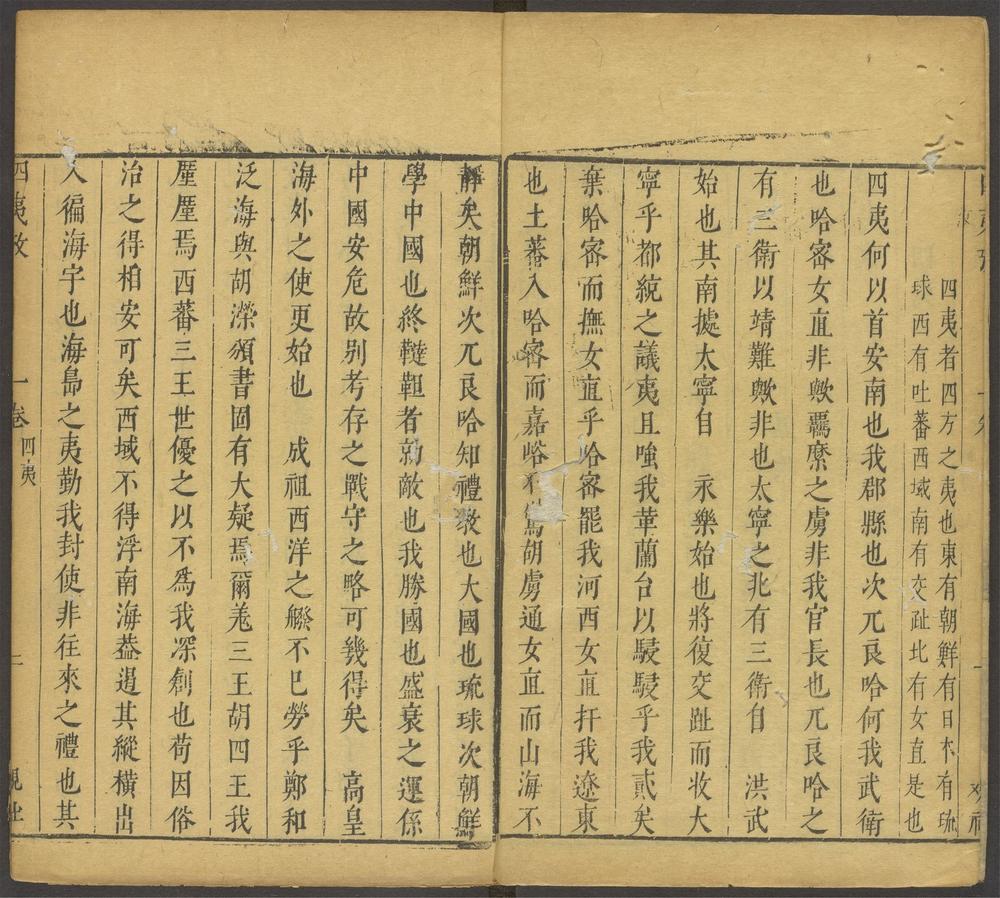 四夷者四方之夷也東有朝鮮有日本有琉
球西有吐蕃西域南有交趾北有女直是也
四夷何以首安南也我郡縣也次兀良哈何我武衛
也哈密女直非歟羈縻之虜非我官長也兀良哈之
有三衛以靖難歟非也太寧之北有三衛自 洪武
始也其南據太寧自 永樂始也將復交趾而收大
寧乎都統之議夷且嗤我華蘭台以駸駸乎我貳矣
棄哈密而撫女直乎哈密罷我河西女直扞我遼東
也土蕃入哈密而嘉峪 駕胡虜通女直而山海不
靜矣朝鮮次兀良哈知禮教也大國也琉球次朝鮮
學中國也終韃靼者勍敵也我勝國也盛衰之運係
中國安危故别考存之戰守之略可幾得矣 高皇
海外之使更始也 成祖西洋之艅不巳勞乎鄭和
泛海與胡濙頒書固有大疑焉爾羗三王胡四王我
厪厪焉西蕃三王世優之以不爲我深創也苟因俗
治之得相安可矣西域不得浮南海葢遏其縱横出
入徧海宇也海島之夷勤我封使非往來之禮也其
四夷攷 一卷 四夷 二